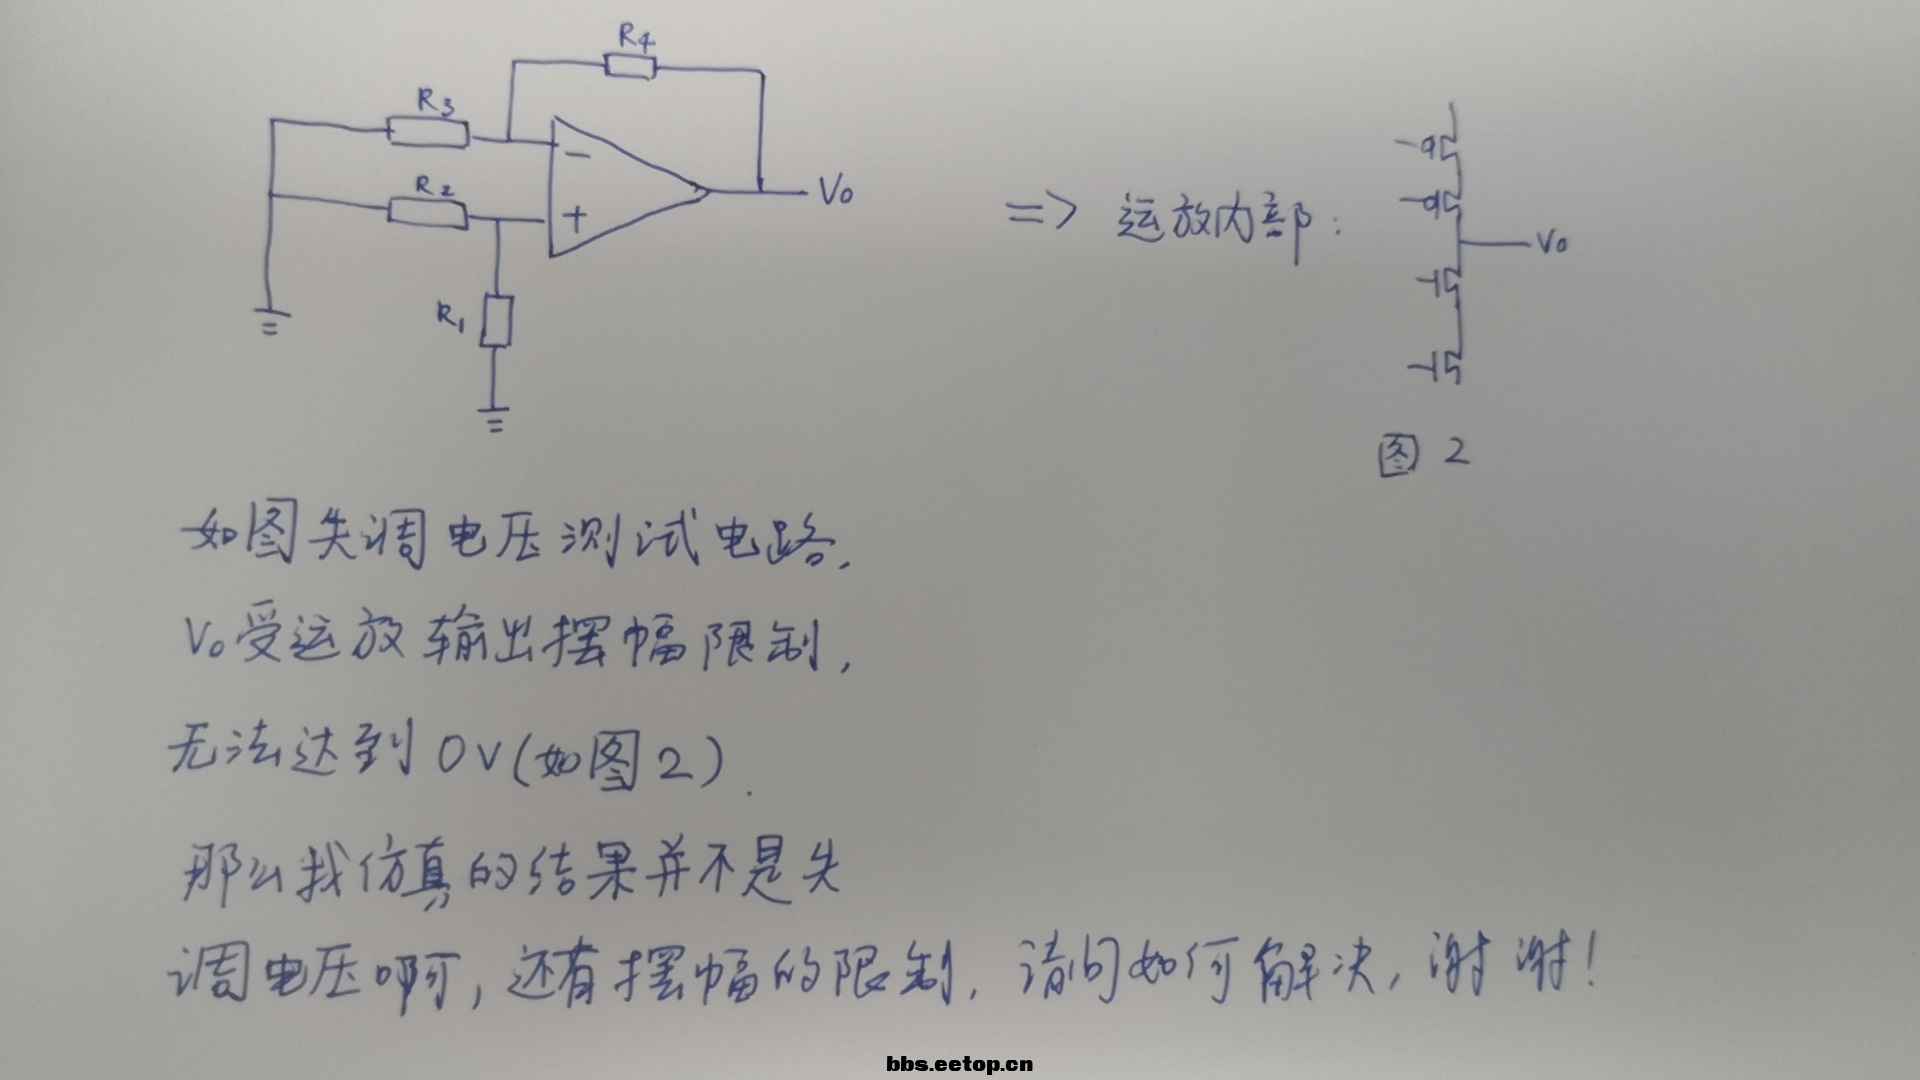 R4
R3
R2
R1
Vo
=> 运放内部:
Vo
图 2
如图失调电压测试电路,
Vo受运放输出摆幅限制,
无法达到 0V(如图2).
那么我仿真的结果并不是失
调电压啊,还有摆幅的限制,请问如何解决,谢谢!
bbs.eetop.cn